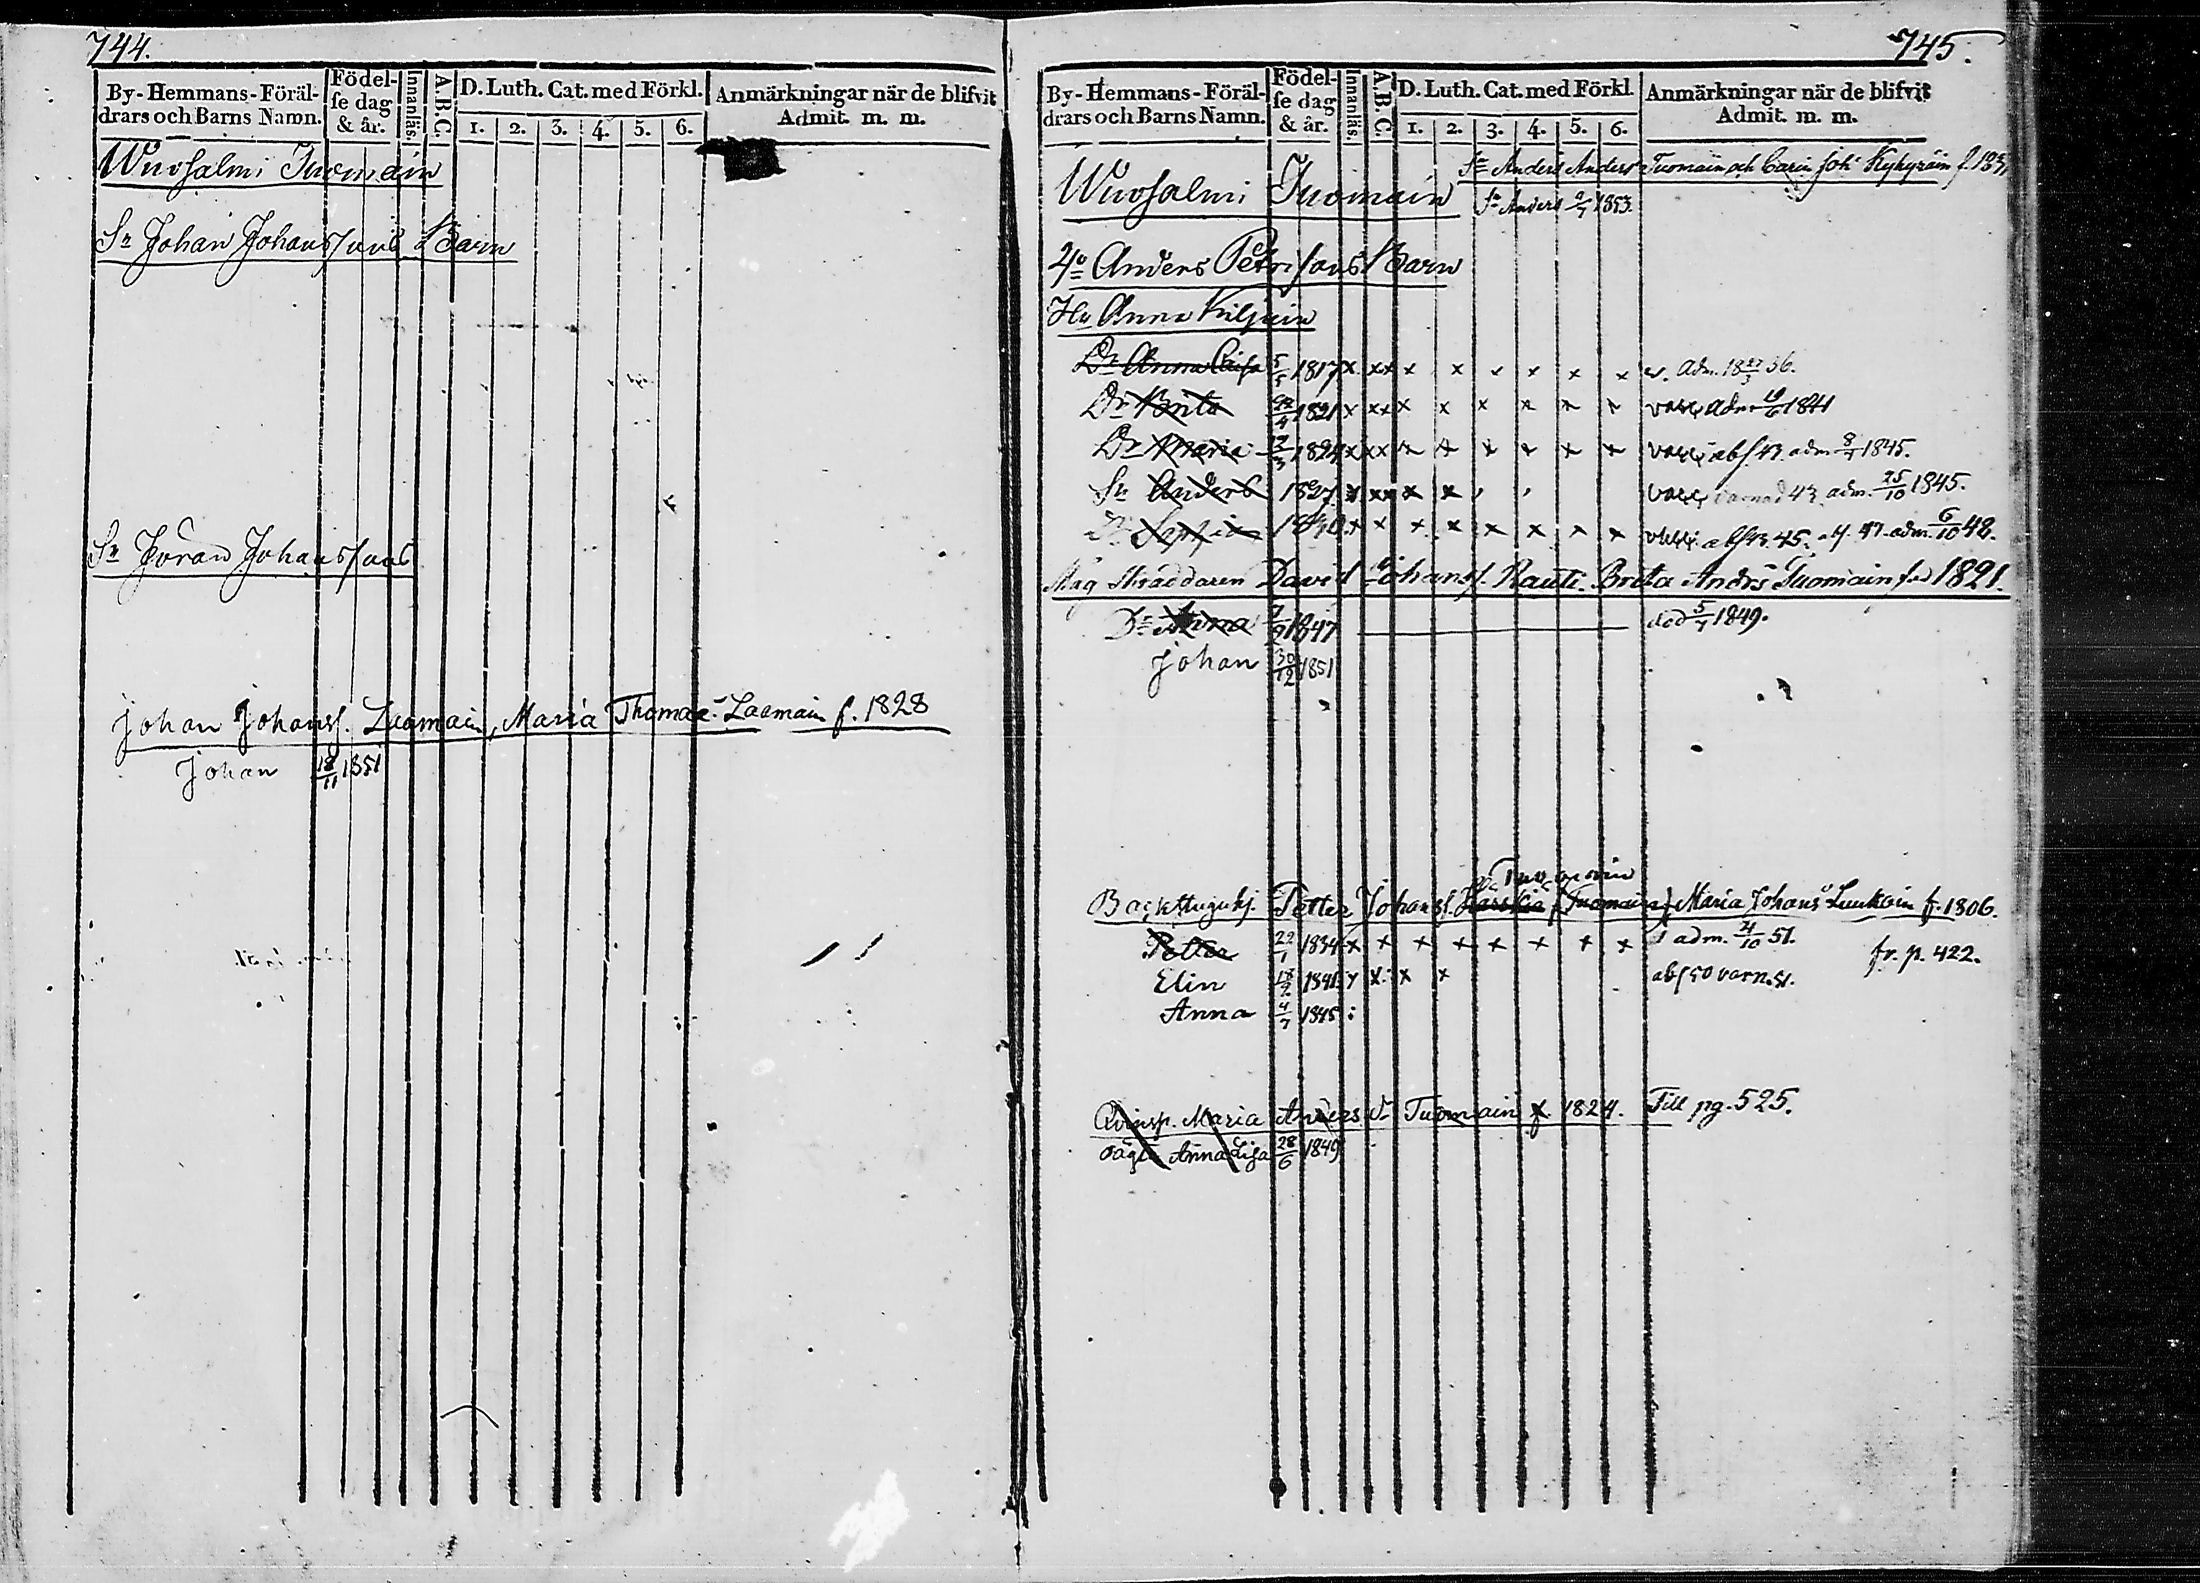 744.
By- Hemmans- Föräl-
drars och Barns Namn.
Födel-
se dag
& år.
Innanläs.
A.B.C.
D. Luth. Cat. med Förkl.
1. 2. 3. 4. 5. 6.
Anmärkningar när de blifvit
Admit. m. m.
Wuosalmi Tuomain
Sn Johan Johanssons Barn
Sn Jöran Johanssons
Johan Johanss. Laamain, Maria Thomae Laamain f. 1828
Johan 18/11 1851
745.
By- Hemmans- Föräl-
drars och Barns Namn.
Födel-
se dag
& år.
Innanläs.
A.B.C.
D. Luth. Cat. med Förkl.
1. 2. 3. 4. 5. 6.
Anmärkningar när de blifvit
Admit. m. m.
Sn Anders Anders Tuomain och Carin Joh: Kykyräin
Wuosalmi Tuomain Sn Anders 1853.
Anders Petri sons Barn
Hu Anna Kiljuin
Dr Anna Caisa 5/5 1817 x xx x x x x x x Adm. 18 27/3 36.
Dr Brita 1821 x xx x x x x x x adm 1841
Dr Maria 1824 x xx x x x x x x abs. 43. adm 1845.
Sn Anders 1827 x xx x x 43 adm. 25/10 1845.
Dr Sophia 1830 x x x x x x x x abs 43. 45. 47. adm. 6/10 48.
Måg Skräddaren David Johans s. Rauti. Brita Andrs Tuomain fod 1821.
Dr Anna 1847 död 1849.
Johan 30/12 1851
Tuomain
Backstuguhj. Petter Johans s. (Tuomain) Maria Johans Luukain f. 1806.
Petter 22/1 1834 x x x x x x x x adm. 4/10 51.
fr. p. 422.
Elin 18/2 1841 x x x abs 50 varn. 51.
Anna 1845
Qvinsp. Maria Anders dr Tuomain f. 1824. Till pg. 525.
oägta Anna Lisa 28/6 1849